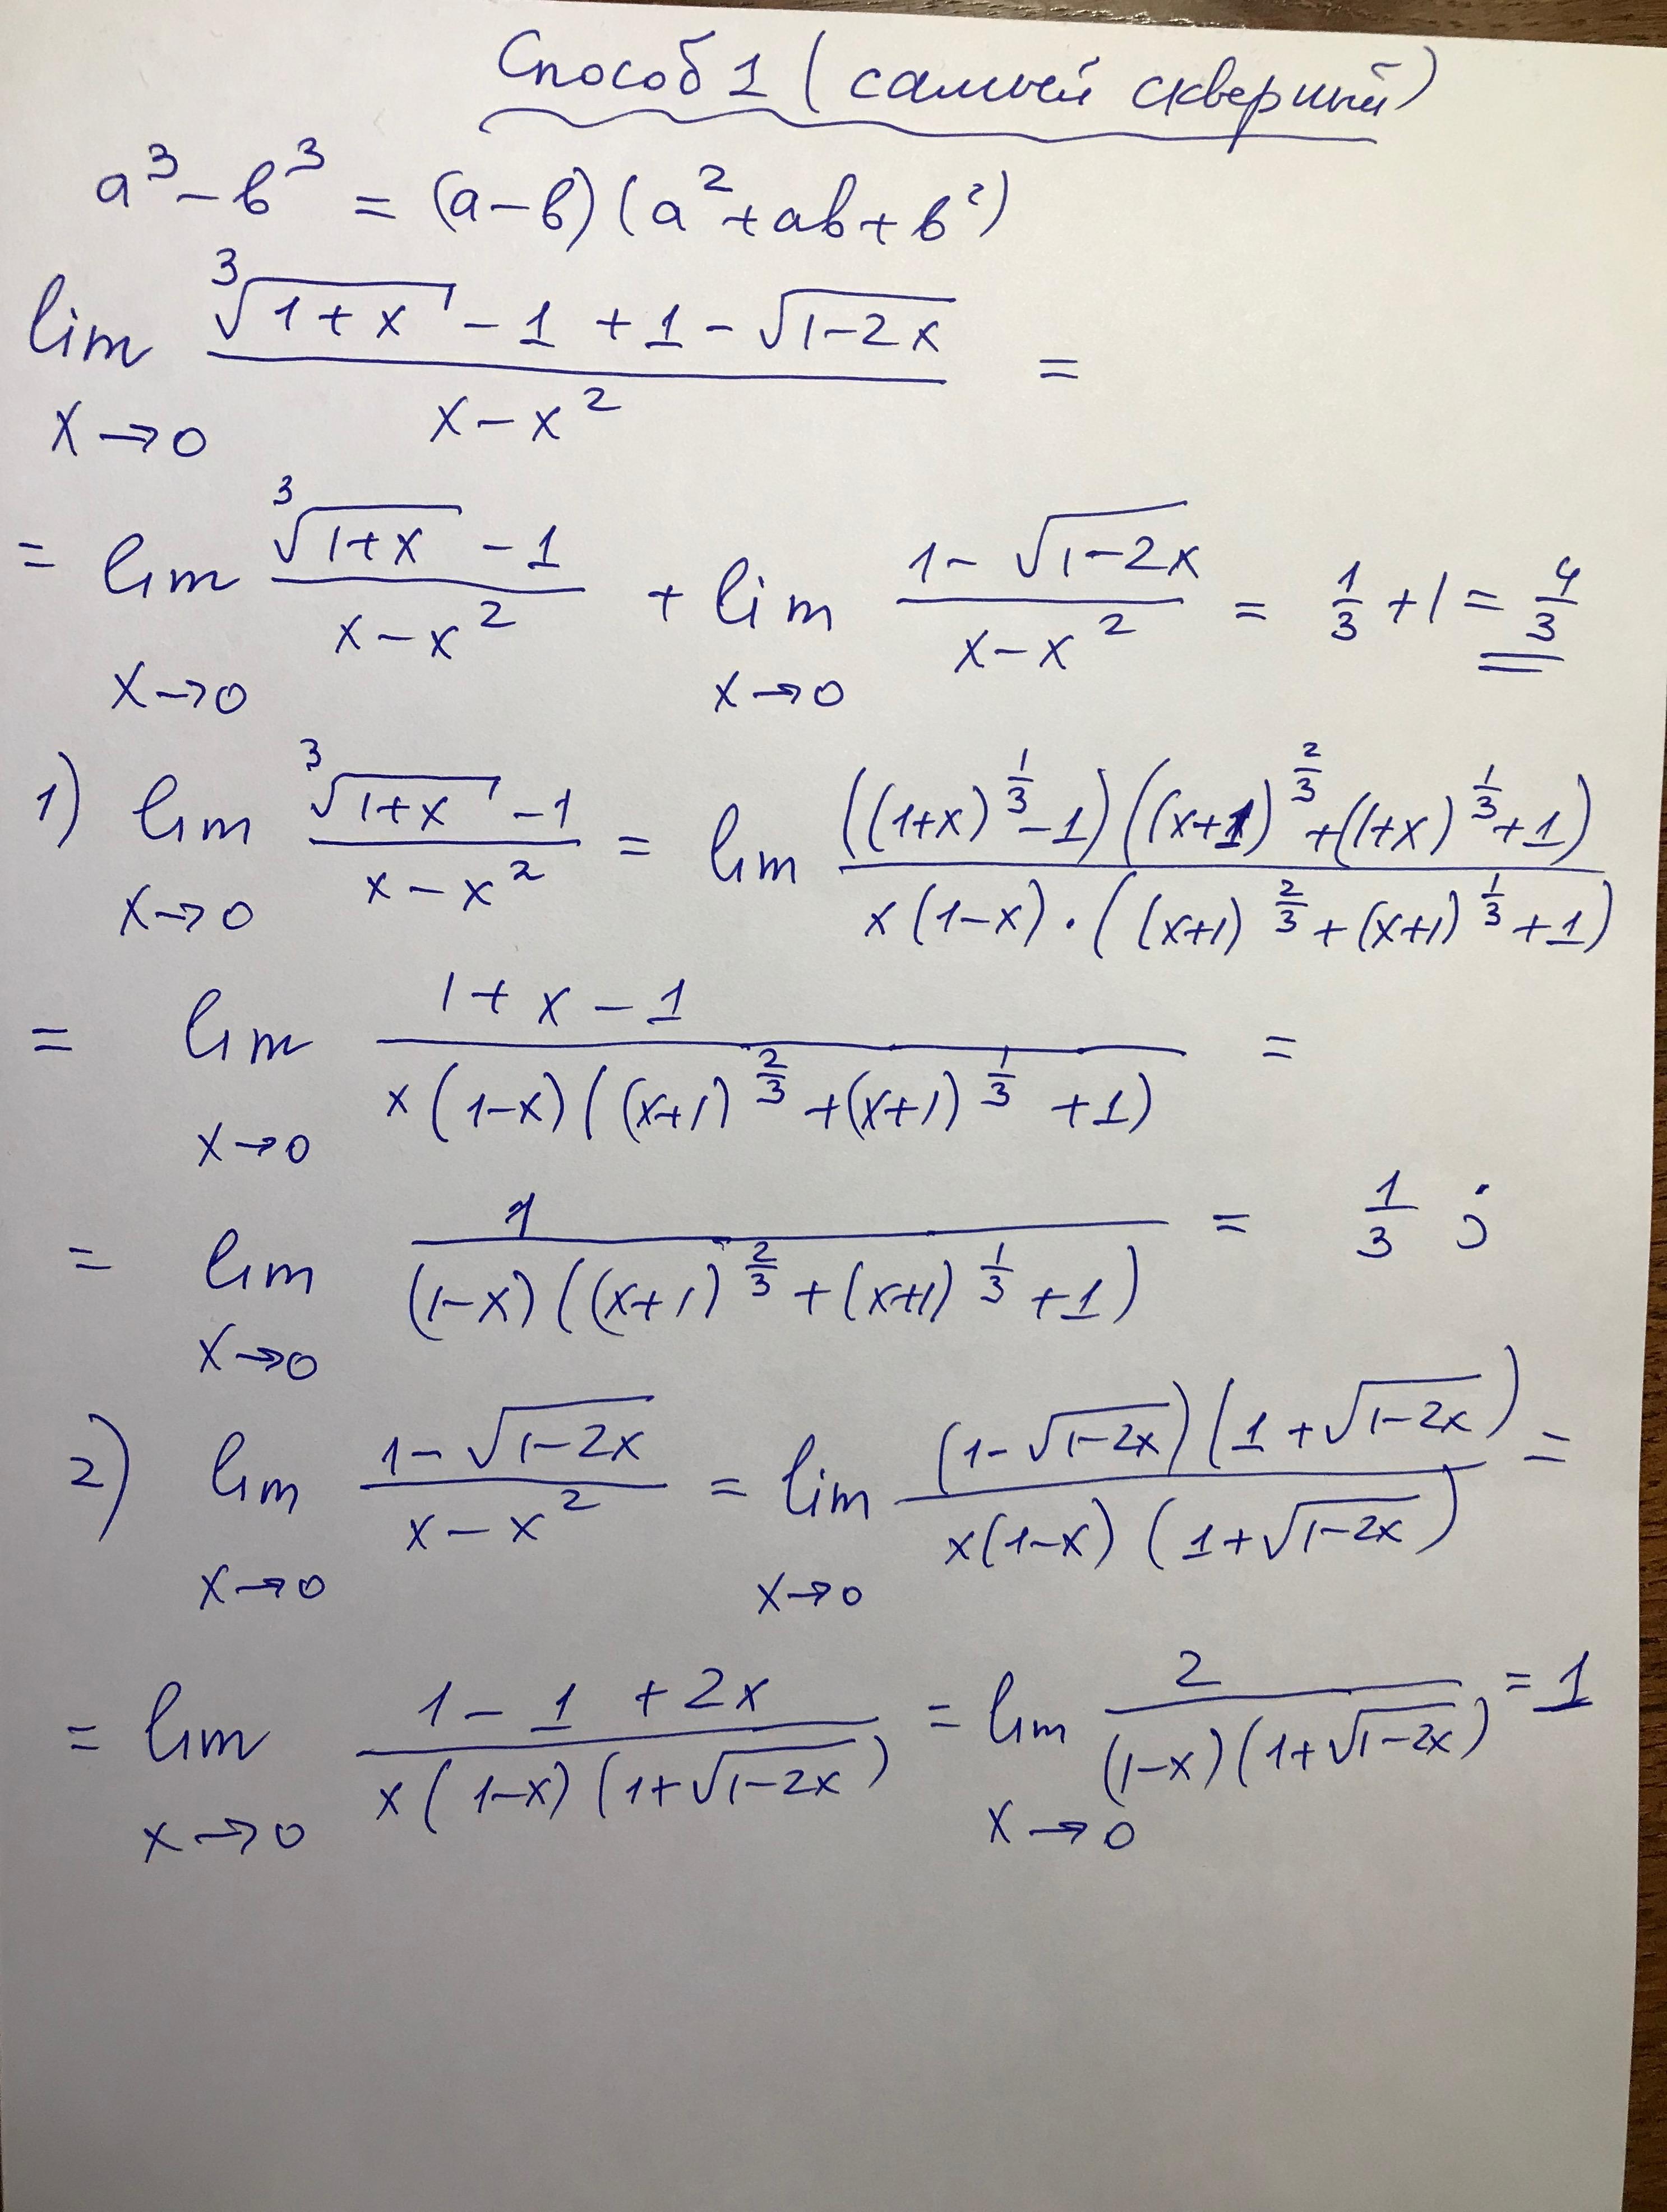 Способ 1 (самый скверный)
a³ – b³ = (a – b)(a² + ab + b²)
lim_{x→0} (∛(1+x) – 1 + 1 – √(1–2x)) / (x – x²) =
= lim_{x→0} (∛(1+x) – 1) / (x – x²) + lim_{x→0} (1 – √(1–2x)) / (x – x²) = 1/3 + 1 = 4/3
1) lim_{x→0} (∛(1+x) – 1) / (x – x²) = lim ((1+x)^{1/3} – 1)((x+1)^{2/3} + (1+x)^{1/3} + 1) / (x(1–x)·((x+1)^{2/3} + (x+1)^{1/3} + 1))
= lim_{x→0} (1 + x – 1) / (x(1–x)((x+1)^{2/3} + (x+1)^{1/3} + 1)) =
= lim_{x→0} 1 / ((1–x)((x+1)^{2/3} + (x+1)^{1/3} + 1)) = 1/3 ;
2) lim_{x→0} (1 – √(1–2x)) / (x – x²) = lim_{x→0} (1 – √(1–2x))(1 + √(1–2x)) / (x(1–x)(1 + √(1–2x))) =
= lim_{x→0} (1 – 1 + 2x) / (x(1–x)(1 + √(1–2x))) = lim_{x→0} 2 / ((1–x)(1 + √(1–2x))) = 1